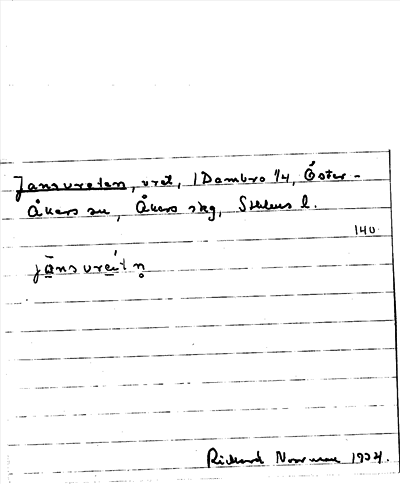 Jansvreten, vret, 1 Dambro 1/4, Öster-
Åkers sn, Åkers skg, Sthlms l.
140
jansvret n̥
Richard Norrman 1934.